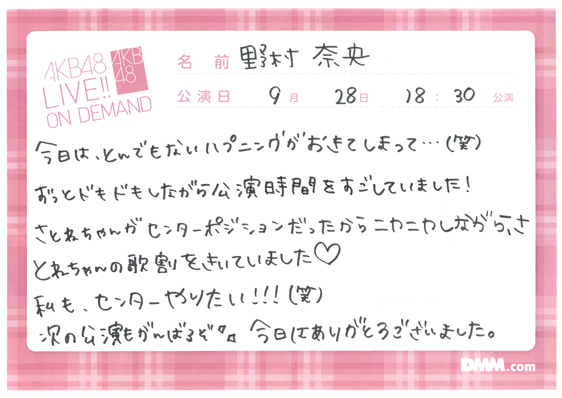 AKB48
LIVE!!
ON DEMAND
AKB
48
名 前 野村 奈央
公演日 9月 28日 18:30 公演
今日は、とんでもないハプニングがおきてしまって…(笑)
ずっとドキドキしながら公演時間をすごしていました!
さとねちゃんがセンターポジションだったからニヤニヤしながら、さ
とねちゃんの歌割をきいていました♡
私も、センターやりたい!!!(笑)
次の公演もがんばるぞ 今日はありがとうございました。
DMM.com